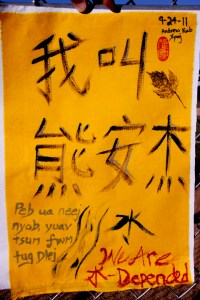 9-24-11
Andrew
我叫
熊安杰
Peb ua neej
nyob, yuav
tsum fwm
tug Dlej
水
We Are
水-Depended